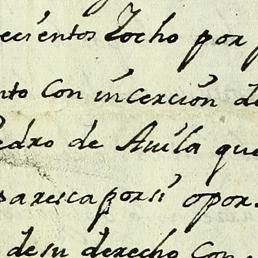 ecientos Yocho por p
nto con incercion de
edro de Auila que
paresca por si o por
de su derecho con